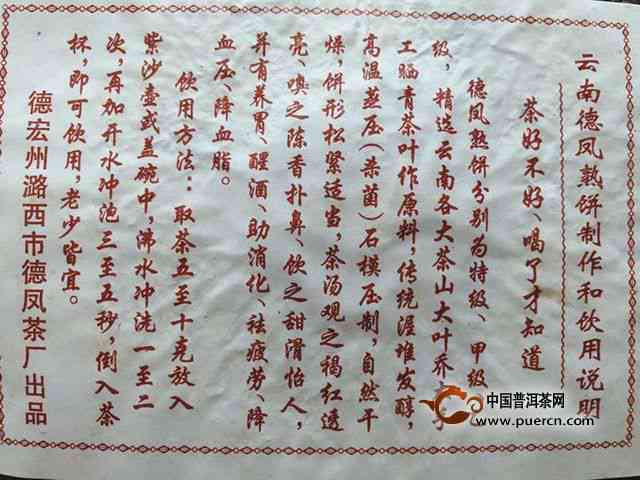 云南德凤熟饼制作和饮用说明
茶好不好、喝了才知道
德凤熟饼分别为特级、甲级
级，精选云南各大茶山大叶乔
工晒青茶叶作原料，传统渥堆发醇，
高温蒸压（杀菌）石模压制，自然干
燥，饼形松紧适当，茶汤观之褐红透
亮、嗅之陈香扑鼻、饮之甜滑怡人，
并有养胃、醒酒、助消化、祛疲劳、降
血压、降血脂。
饮用方法：取茶五至十克放入
紫沙壶或盖碗中，沸水冲洗一至二
次，再加开水冲泡三至五秒，倒入茶
杯，即可饮用，老少皆宜。
德宏州潞西市德凤茶厂出品
中国普洱茶网
www.puercn.com